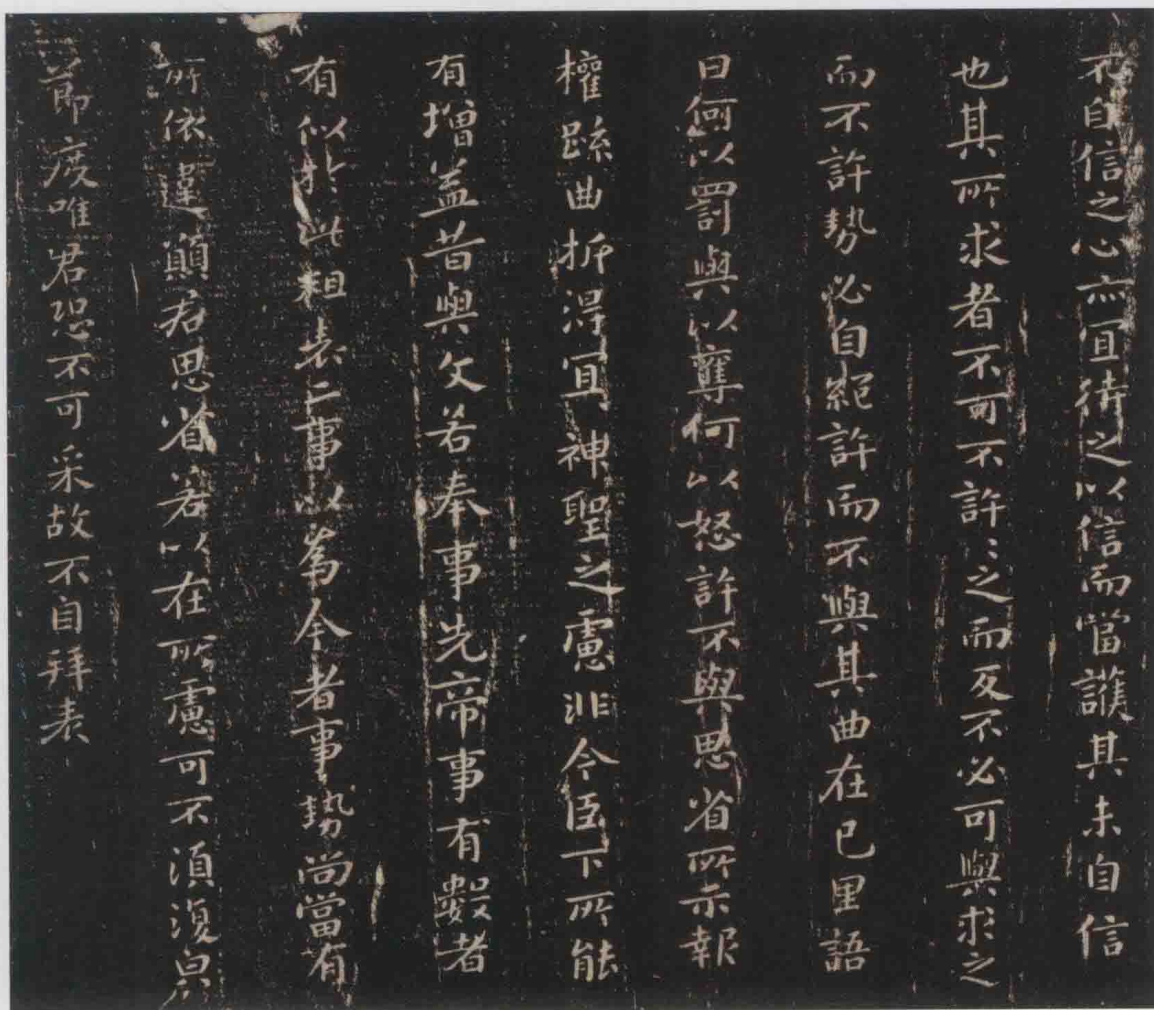 不自信之心亦宜待之以信而當護其未自信
也其所求者不可不許許之而反不必可與求之
而不許勢必自絕許而不與其曲在己里語
曰何以罰與以奪何以怒許不與思省所示報
權疏曲折得宜神聖之慮非今臣下所能
有增益昔與文若奉事先帝事有數者
有似於此粗表二事以為今者事勢尚當有
所依違願君思省若以在所慮可不須復皃
節度唯君恐不可采故不自拜表